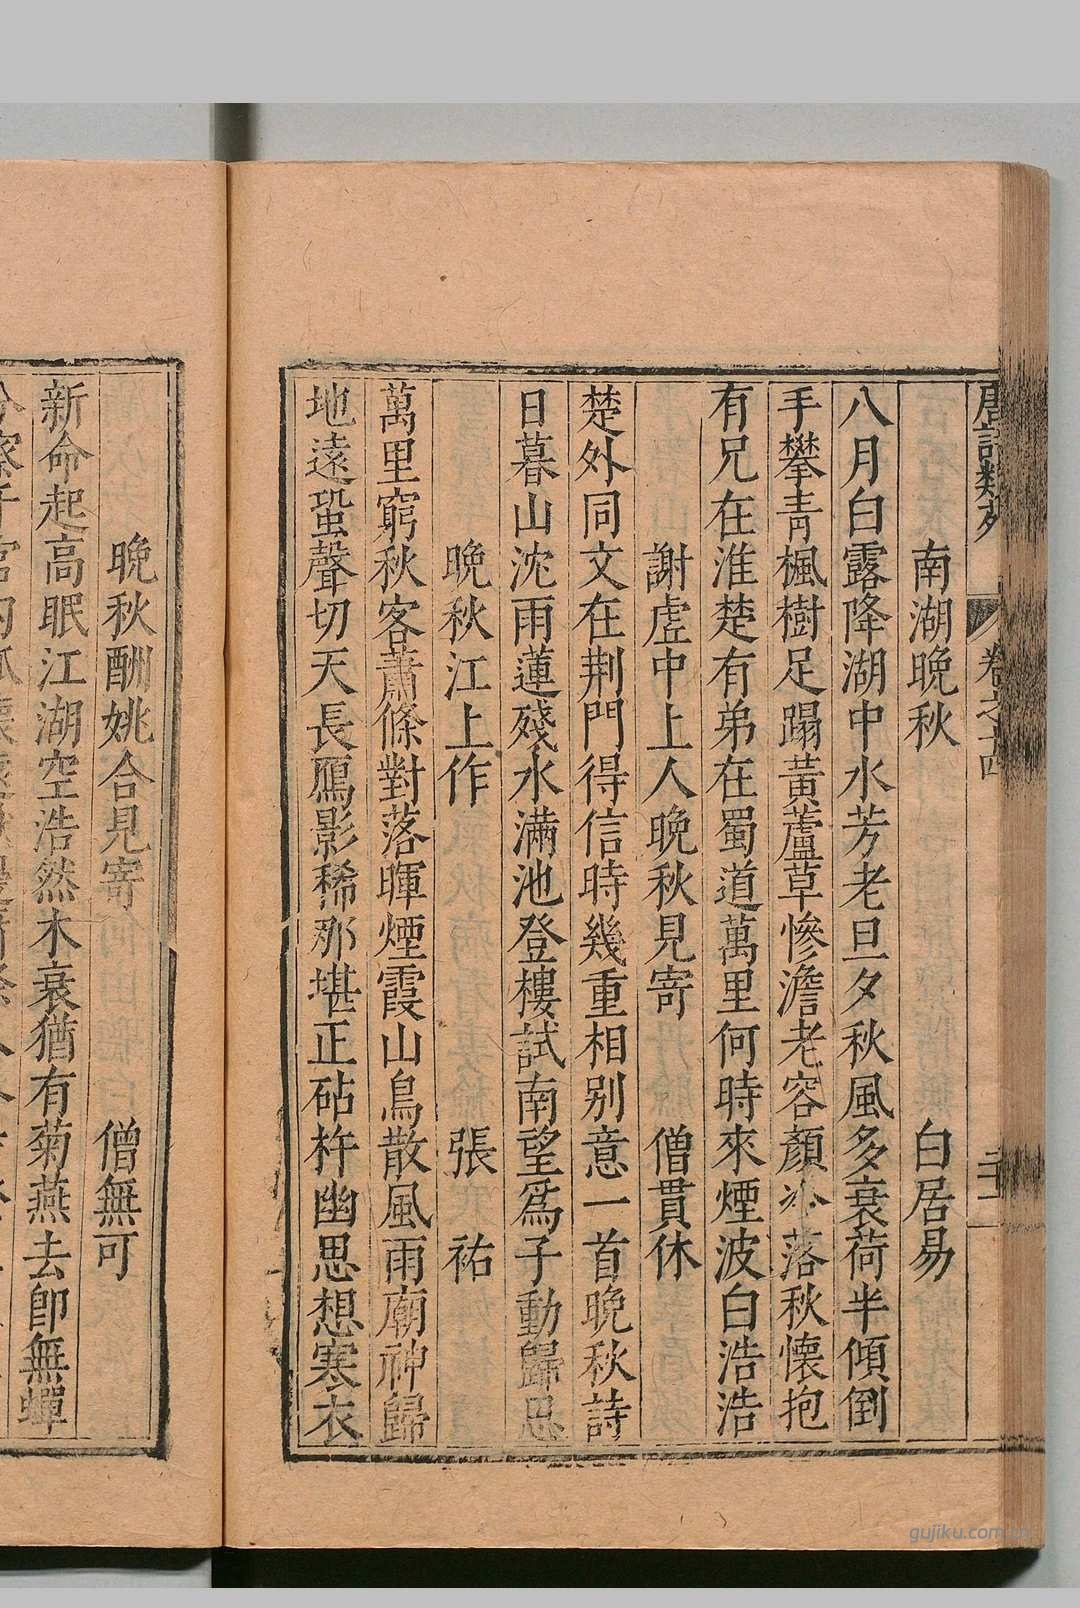 唐詩類苑 卷之十四 二十一
南湖晚秋 白居易
八月白露降湖中水芳老旦夕秋風多衰荷半傾倒
手攀青楓樹足蹋黃蘆草慘澹老容顏冷落秋懷抱
有兄在淮楚有弟在蜀道萬里何時來煙波白浩浩
謝虛中上人晚秋見寄 僧貫休
楚外同文在荆門得信時幾重相别意一首晚秋詩
日暮山沈雨蓮殘水滿池登樓試南望爲子動歸思
晚秋江上作 張祜
萬里窮秋客蕭條對落暉煙霞山鳥散風雨廟神歸
地遠蛩聲切天長鴈影稀那堪正砧杵幽思想寒衣
晚秋酬姚合見寄 僧無可
新命起高眠江湖空浩然木衰猶有菊燕去卽無蟬
gujiku.com